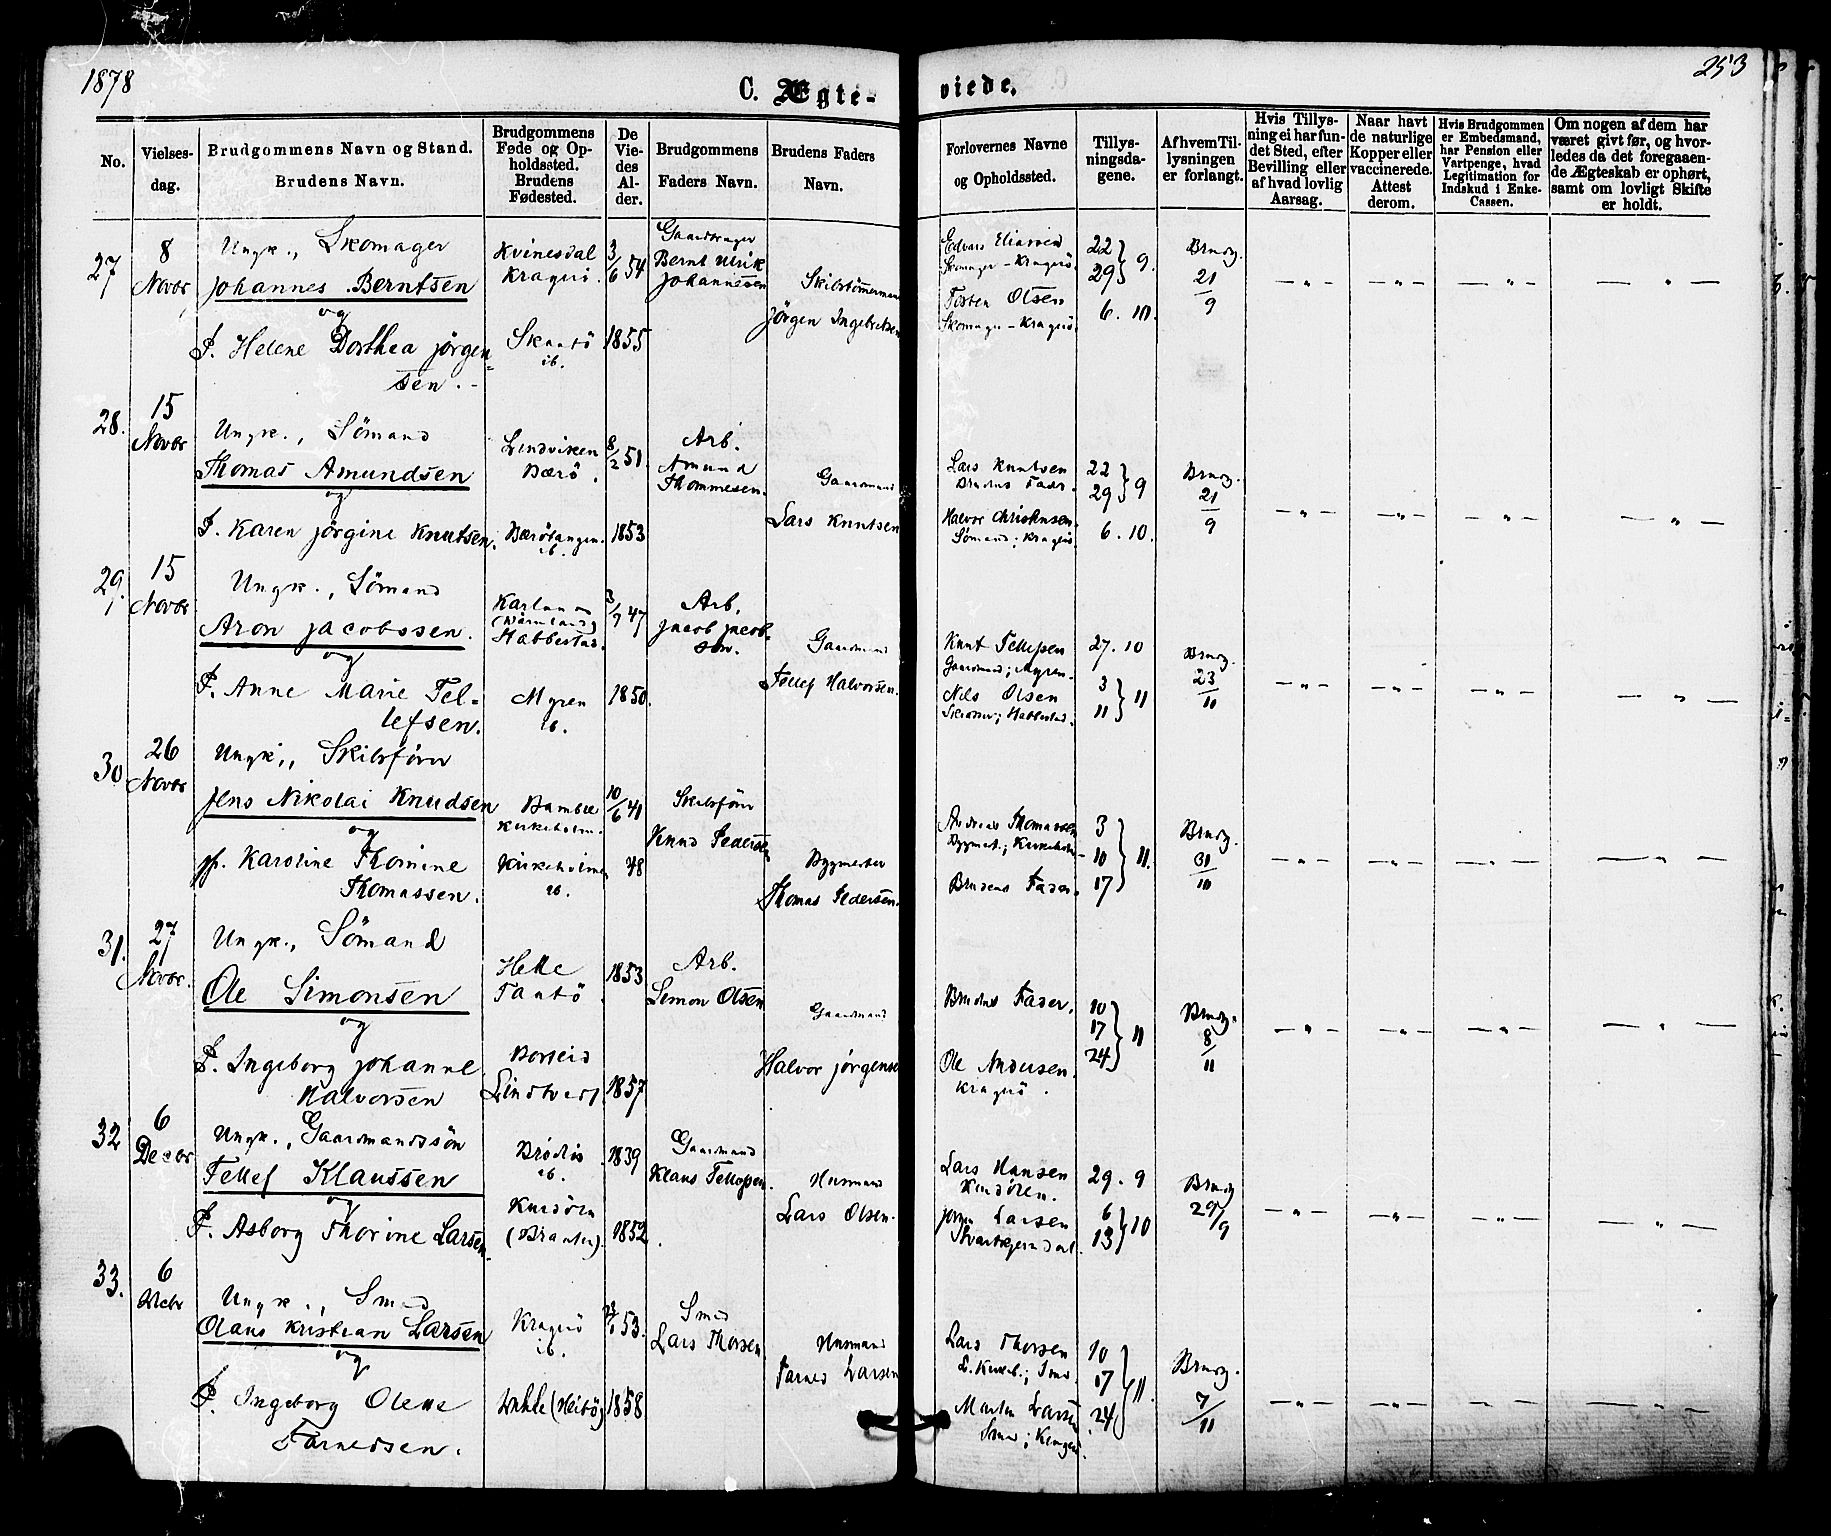 1878
C. Ægte-
viede.
253
No.
Vielses-
dag.
Brudgommens Navn og Stand.
Brudens Navn.
Brudgommens
Føde og Op-
holdssted.
Brudens
Fødested.
De
Vie-
des
Al-
der.
Brudgommens
Faders Navn.
Brudens Faders
Navn.
Forlovernes Navne
og Opholdssted.
Tillys-
ningsda-
gene.
Af hvem Til-
lysningen
er forlangt.
Hvis Tillys-
ning ei har fun-
det Sted, efter
Bevilling eller
af hvad lovlig
Aarsag.
Naar havt
de naturlige
Kopper eller
vaccinerede.
Attest
derom.
Hvis Brudgommen
er Embedsmand,
har Pension eller
Vartpenge, hvad
Legitimation for
Indskud i Enke-
Cassen.
Om nogen af dem har
været givt før, og hvor-
ledes da det foregaaen-
de Ægteskab er ophørt,
samt om lovligt Skifte
er holdt.
27
8
Novbr
Ungk., Skomager
Johannes Berntsen
og
P. Helene Dorthea Jørgen-
sen.
Kvinesdal
Kragerö.
Skaatö
ib.
3/6 54
1855
Bernt Ulrik
Johannesen
Skibstømmermand
Jörgen Ingebretsen
Edvard Eliassen
Skomager - Kragerö.
Tosten Olsen
Skomager - Kragerö.
22
29 } 9.
6. 10.
Brudg.
21/9
28.
15
Novbr
Ungk., Sömand
Thomas Amundsen
og
P. Karen Jörgine Knutsen.
Lindviken
Bærö.
Bærötangen.
ib.
8/2 51.
1853
Arb.
Amund
Thommesen.
Gaardmand
Lars Knutsen
Lars Knutsen
Brudens Fader.
Halvor Christensen.
Sömand; Kragerö.
22
29 } 9
6. 10.
Brudg.
21/9
29.
15
Novbr
Ungk., Sömand
Aron Jacobssen.
og
P. Anne Marie Tel-
lefsen.
(Wärmland)
Habbestad.
Myren
ib.
3/7 47
1850.
Arb.
Jacob Jacob-
son.
Gaardmand
Tellef Halvorsen.
Knut Tellefsen
Gaardmand; Myren.
Nils Olsen
Habbestad.
27. 10
3
11 } 11
Brudg.
23/11
30.
26
Novbr
Ungk., Skibsförer
Jens Nikolai Knudsen
og
P. Karoline Thomine
Thomassen.
Bamble
Kirkeholm.
Kirkeholmen
ib.
10/6 41
48
Skibsförer
Knud Pedersen
Bygmester
Thomas Pedersen.
Andreas Thomassen
Bygmest.; Kirkeholm
Brudens Fader.
3
10
17 } 11.
Brudg.
31/10
31.
27
Novbr.
Ungk., Sömand
Ole Simonsen
og
P. Ingeborg Johanne
Halvorsen
Helle
Taatö
Borteid
Lindtveit.
1853
1857
Arb.
Simon Olsen
Gaardmand
Halvor Jörgensen
Brudens Fader.
Ole Andersen.
Kragerö.
10
17
24 } 11
Brudg.
8/11
32
6
Decbr
Ungk., Gaardmandssön
Tellef Klaussen
og
P. Asborg Thorine Larsen.
ib.
1839
1852
Gaardmand
Klaus Tellefsen.
Husmand
Lars Olsen.
Lars Hansen
Jörgen Larsen
29. 9
6
13 } 10
Brudg
29/9
33.
6
Debr
Ungk., Smed
Olaus Kristian Larsen
og
P. Ingeborg Olene
Tarnedsen.
Kragerö
ib.
Dahle (Heibö)
53.
1858
Smed
Lars Thorsen
Husmand
Tarned Larsen
Lars Thorsen
Martin Larsen
Smed; Kragerö.
10
17
24 } 11.
Brudg.
7/11